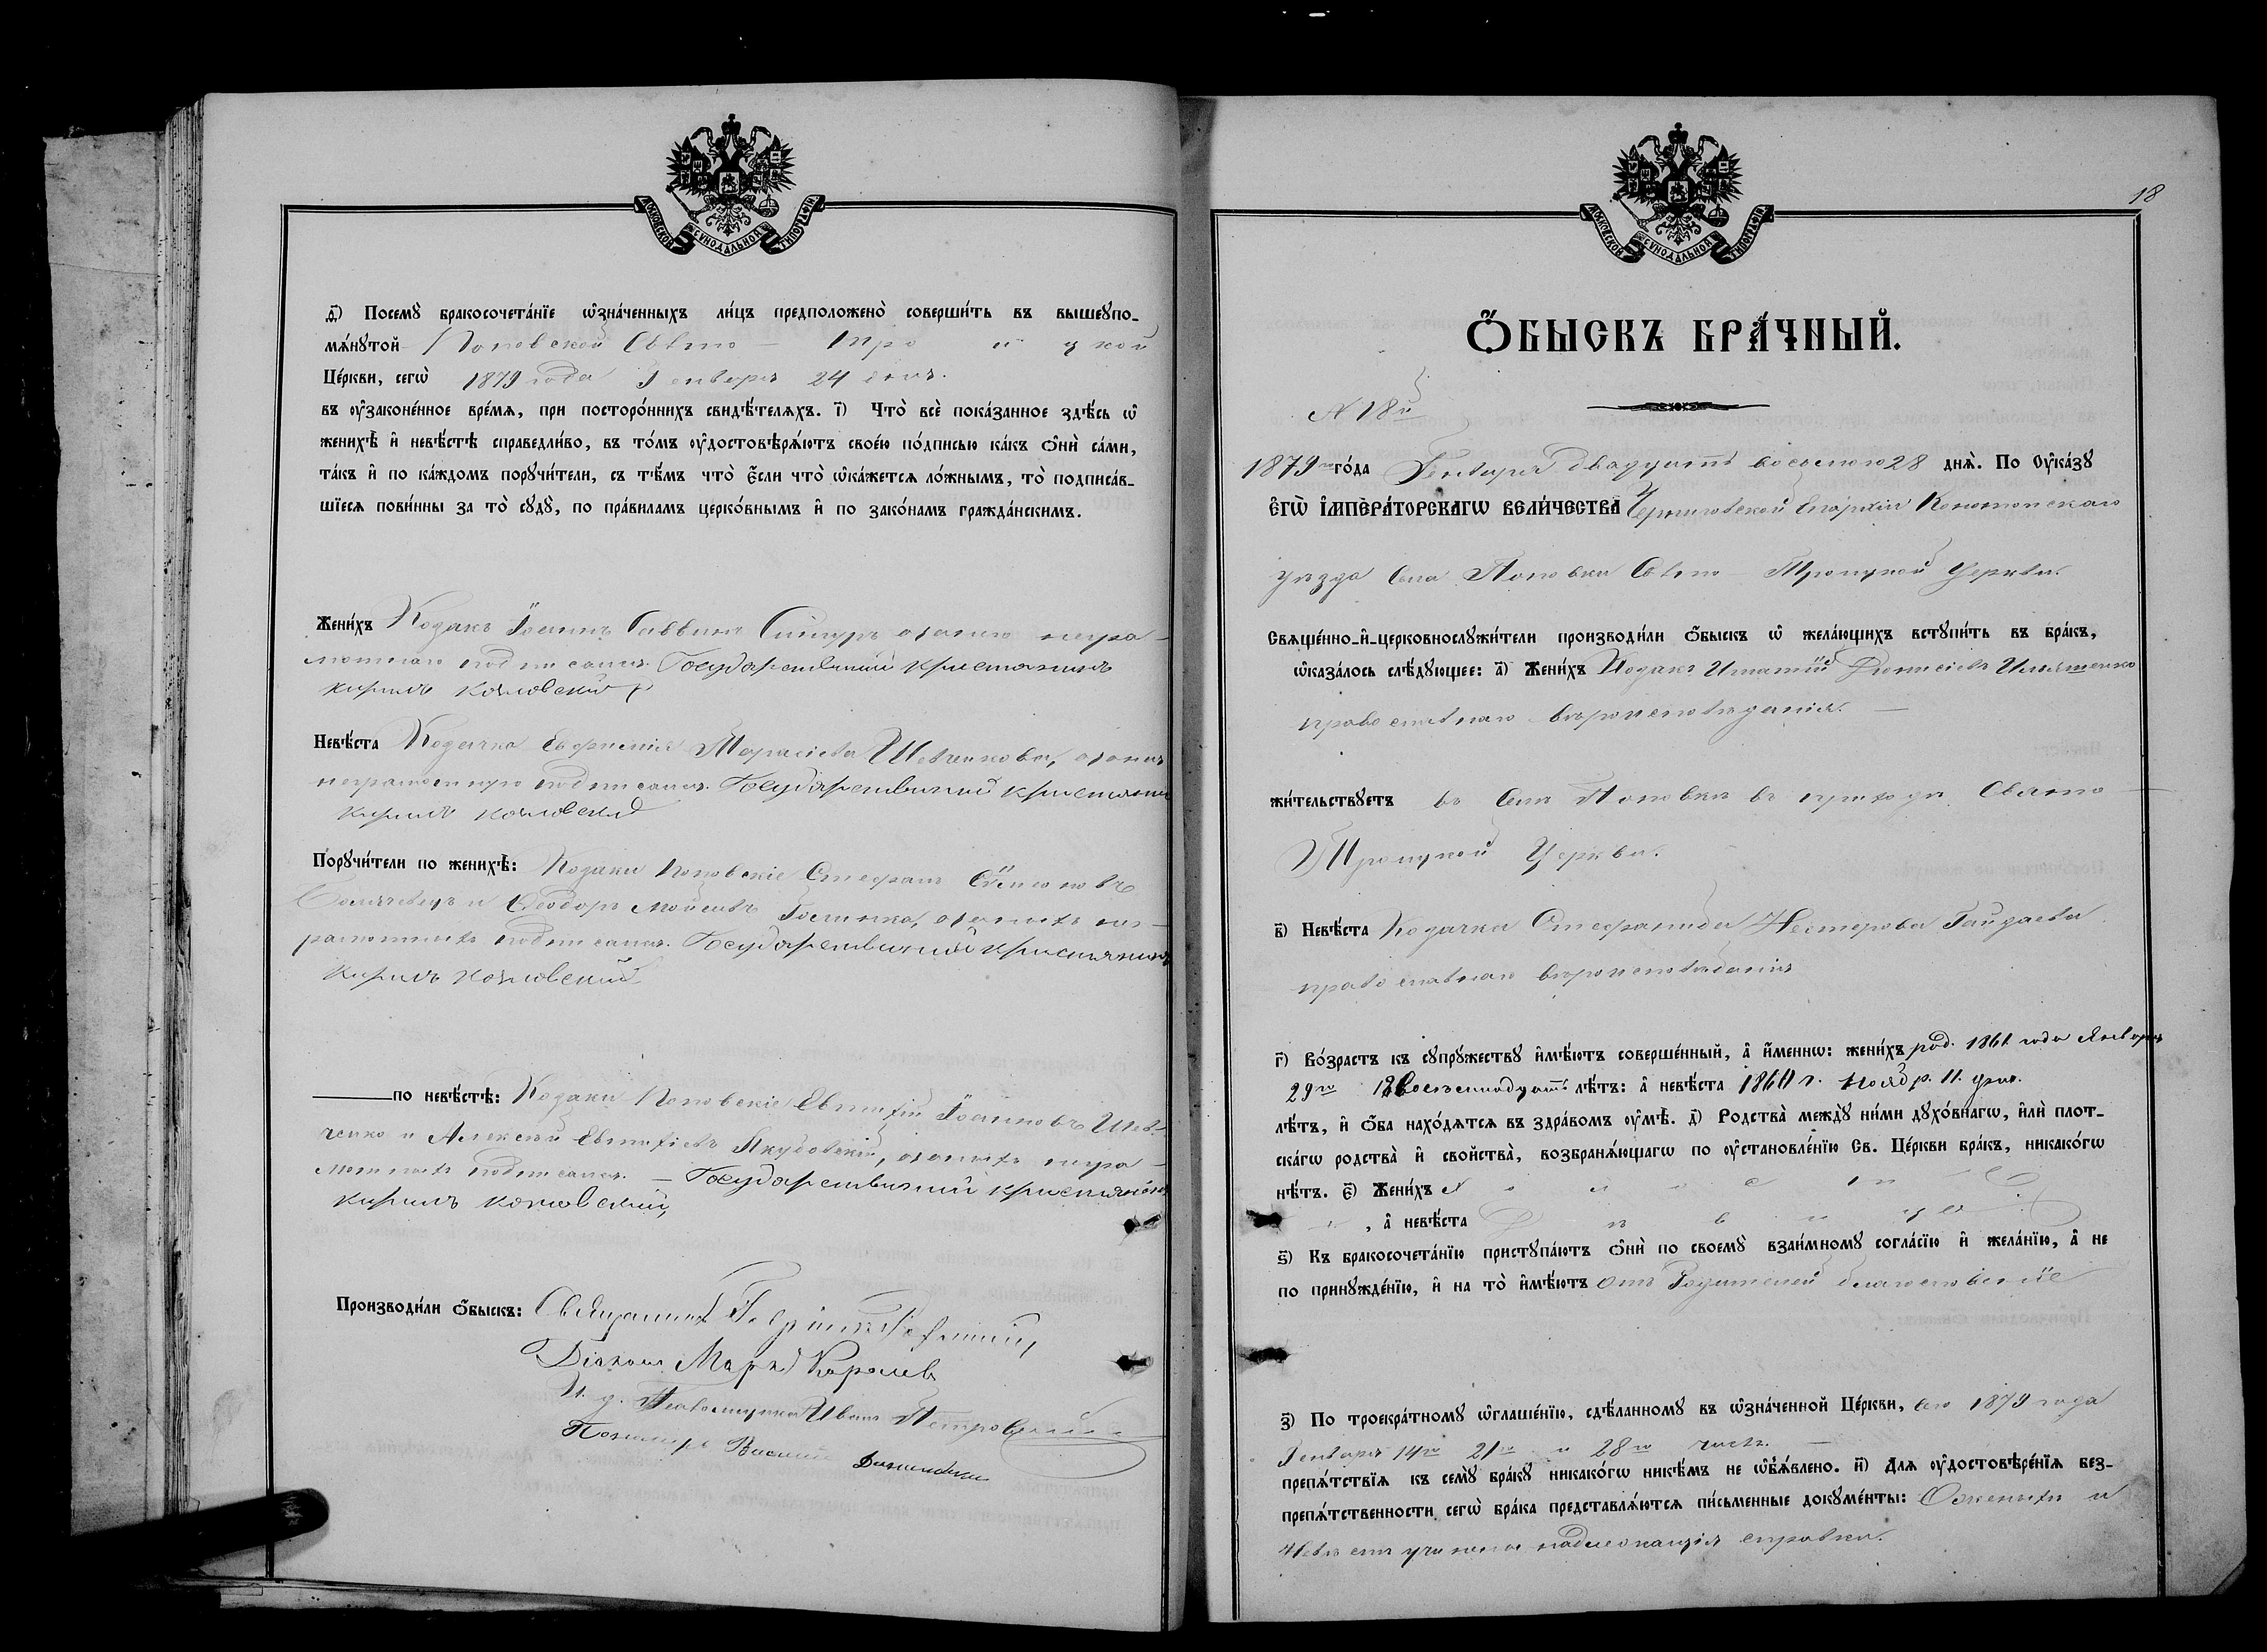 МОСКОВСКОЙ СѴНОДАЛЬНОЙ ТИПОГРАФІИ
д҃) Посемꙋ̀ бракосочета́нїе ѡ҆зна́ченныхъ ли́цъ предположено̀ соверши́ть въ вышеꙋпо-
мѧ́нꙋтой Поповской Свято - Тро и ц кой
Це́ркви, сегѡ̀ 1879 года Генваря 24 дня.
въ ᲂу҆законе́нное вре́мѧ, при посторо́ннихъ свидѣ́телѧхъ. і҃) Что̀ всѐ пока́занное здѣ́сь ѡ҆
женихѣ̀ и҆ невѣ́стѣ справедли́во, въ то́мъ ᲂу҆достовѣрѧ́ютъ свое́ю по́дписью ка́къ ѻ҆нѝ са́ми,
та́къ и҆ по ка́ждомъ порꙋчи́тели, съ тѣ́мъ что̀ є҆́сли что̀ ѡ҆ка́жетсѧ ло́жнымъ, то̀ подписа́в-
шїесѧ пови́нны за то̀ сꙋдꙋ̀, по пра́виламъ церко́внымъ и҆ по зако́намъ гражда́нскимъ.
Жени́хъ Козакъ Іоаннъ Саввинъ негра-
мотнаго подписался Государственный крестьянинъ
Кирилъ
Невѣ́ста Козачка Евфимія Шевченкова,
неграмотную подписался Государственный крестьянинъ
Кирилъ
Порꙋчи́тели по женихѣ̀: Козаки Поповскіе Стефанъ
и Ѳеодоръ Моисеевъ нег-
рамотныхъ подписался Государственный крестьянинъ
Кирилъ
по невѣ́стѣ: Козаки Поповскіе Евтихій Іоанновъ Шев-
ченко и Алексѣй Евтихіевъ негра-
мотныхъ подписался — Государственный крестьянинъ
Кирилъ
Производи́ли ѻ҆́быскъ: Священникъ
Діаконъ Маркъ
И. д. Псаломщика Иванъ Петровскій
Пономарь Василій
18
МОСКОВСКОЙ СѴНОДАЛЬНОЙ ТИПОГРАФІИ
Ѻ҆́БЫСКЪ БРА́ЧНЫЙ.
N 18й
1879го го́да Генваря двадцать восьмого 28 днѧ̀. По Оу҆ка́зꙋ
Є҆ГѠ̀ І҆МПЕРА́ТОРСКАГѠ ВЕЛИ́ЧЕСТВА Черниговской Епархіи Конотопскаго
уѣзда Села Поповки Свято - Троицкой Церкви.
Свѧще́нно-и҆-церковнослꙋжи́тели производи́ли ѻ҆́быскъ ѡ҆ жела́ющихъ встꙋпи́ть въ бра́къ,
ѡ҆каза́лось слѣ́дꙋющее: а҃) Жени́хъ Козакъ Игнатій Діонисіевъ
православнаго вѣроисповѣданія. —
жи́тельствꙋетъ въ Селѣ Поповкѣ въ приходѣ Свято -
Троицкой Церкви.
в҃) Невѣ́ста Козачка Стефанида Несторова Гайдаева
православнаго вѣроисповѣданія
г҃) Во́зрастъ къ сꙋпрꙋ́жествꙋ и҆мѣ́ютъ соверше́нный, а҆ и҆́меннѡ: жени́хъ род. 1861 года Января
29го 18 восемнадцать лѣ́тъ: а҆ невѣ́ста 1860 г. Ноябр. 11 дня.
лѣ́тъ, и҆ ѻ҆́ба нахо́дѧтсѧ въ здра́вомъ ᲂу҆мѣ̀. д҃) Родства̀ междꙋ̀ ни́ми дꙋхо́внагѡ, и҆лѝ плот-
ска́гѡ родства̀ и҆ свойства̀, возбранѧ́ющагѡ по ᲂу҆становле́нїю Св. Це́ркви бра́къ, никако́гѡ
нѣ́тъ. є҃) Жени́хъ х о л о с т ы
й , а҆ невѣ́ста д ѣ в и ца.
ѕ҃) Къ бракосочета́нїю пристꙋпа́ютъ ѻ҆нѝ по своемꙋ̀ взаи́мномꙋ согла́сїю и҆ жела́нїю, а҆ не
по принꙋжде́нїю, и҆ на то̀ и҆мѣ́ютъ отъ Родителей благословеніе
з҃) По троекра́тномꙋ ѡ҆глаше́нїю, сдѣ́ланномꙋ въ ѡ҆зна́ченной Це́ркви, сего 1879 года
Генваря 14го 21го и 28го чиселъ. —
препѧ́тствїѧ къ семꙋ̀ бра́кꙋ никако́гѡ никѣ́мъ не ѡ҆б̾ѧ́влено. и҃) Длѧ ᲂу҆достовѣре́нїѧ без-
препѧ́тственности сегѡ̀ бра́ка представлѧ́ютсѧ пи́сьменные докꙋме́нты: О женихѣ и
Невѣстѣ учинена надлежащая справка.